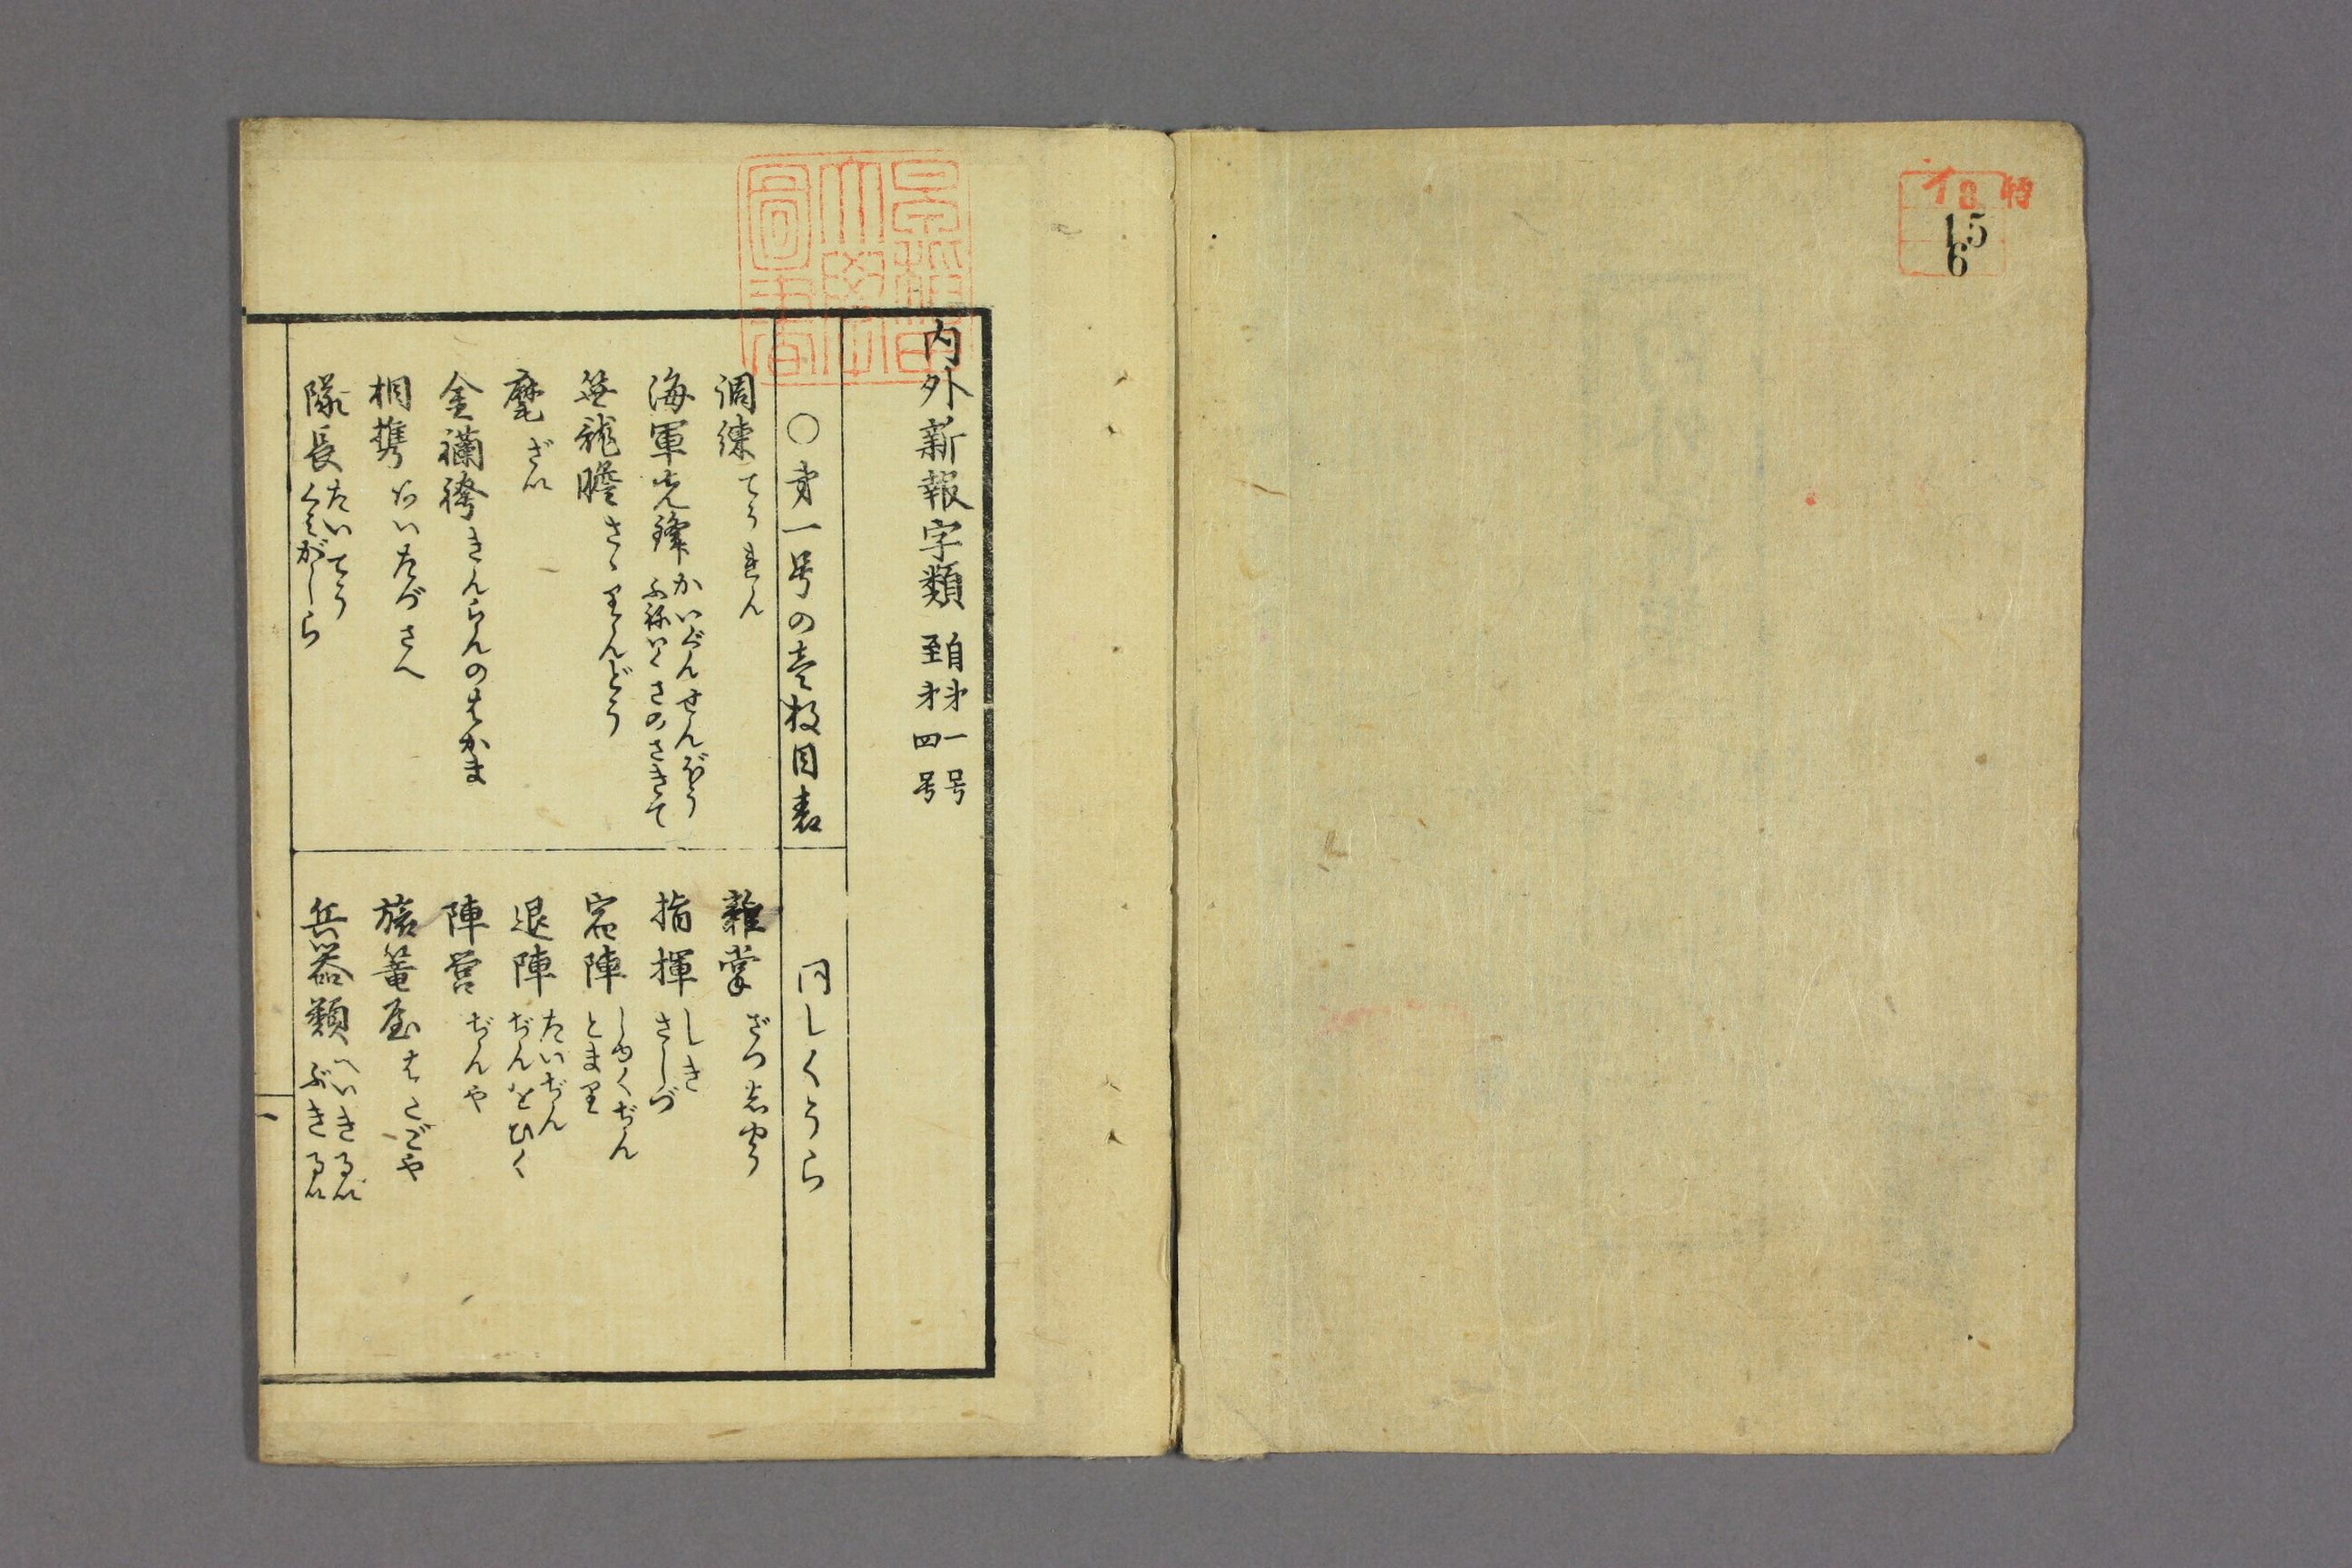 特
イ8
15
6
早稲田
大學
圖書
内外新報字類 自才一号
至才四号
○第一号の壱枚目表
調練 てうれん
海軍先鋒 かいぐんせんぼう
ふねいくさのさきて
笹龍膽 さゝりんどう
麾 ざい
金襴袴 きんらんのはかま
相携 あいたづさへ
隊長 たいてう
くみがしら
同しくうら
雜掌 ざつしやう
指揮 しき
さしづ
宿陣 しゆくぢん
とまり
退陣 たいぢん
ぢんをひく
陣営 ぢんや
旅篭屋 はたごや
兵器類 へいきるい
ぶきるい
一